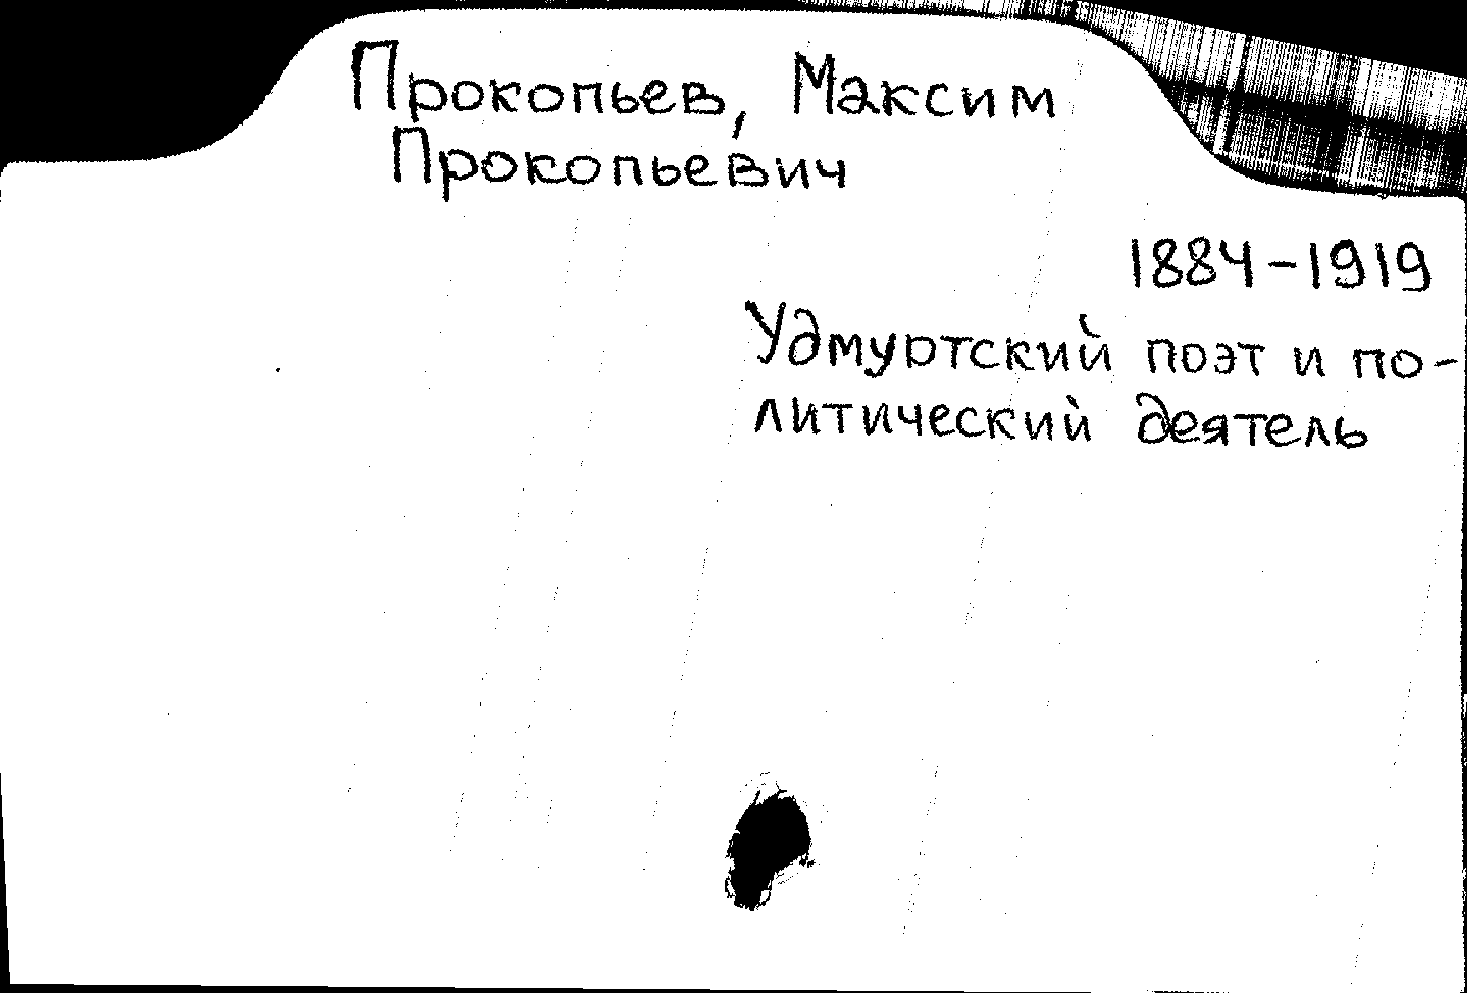 Прокопьев, Максим
Прокопьевич
1884-1919
Удмуртский поэт и по-
литический деятель